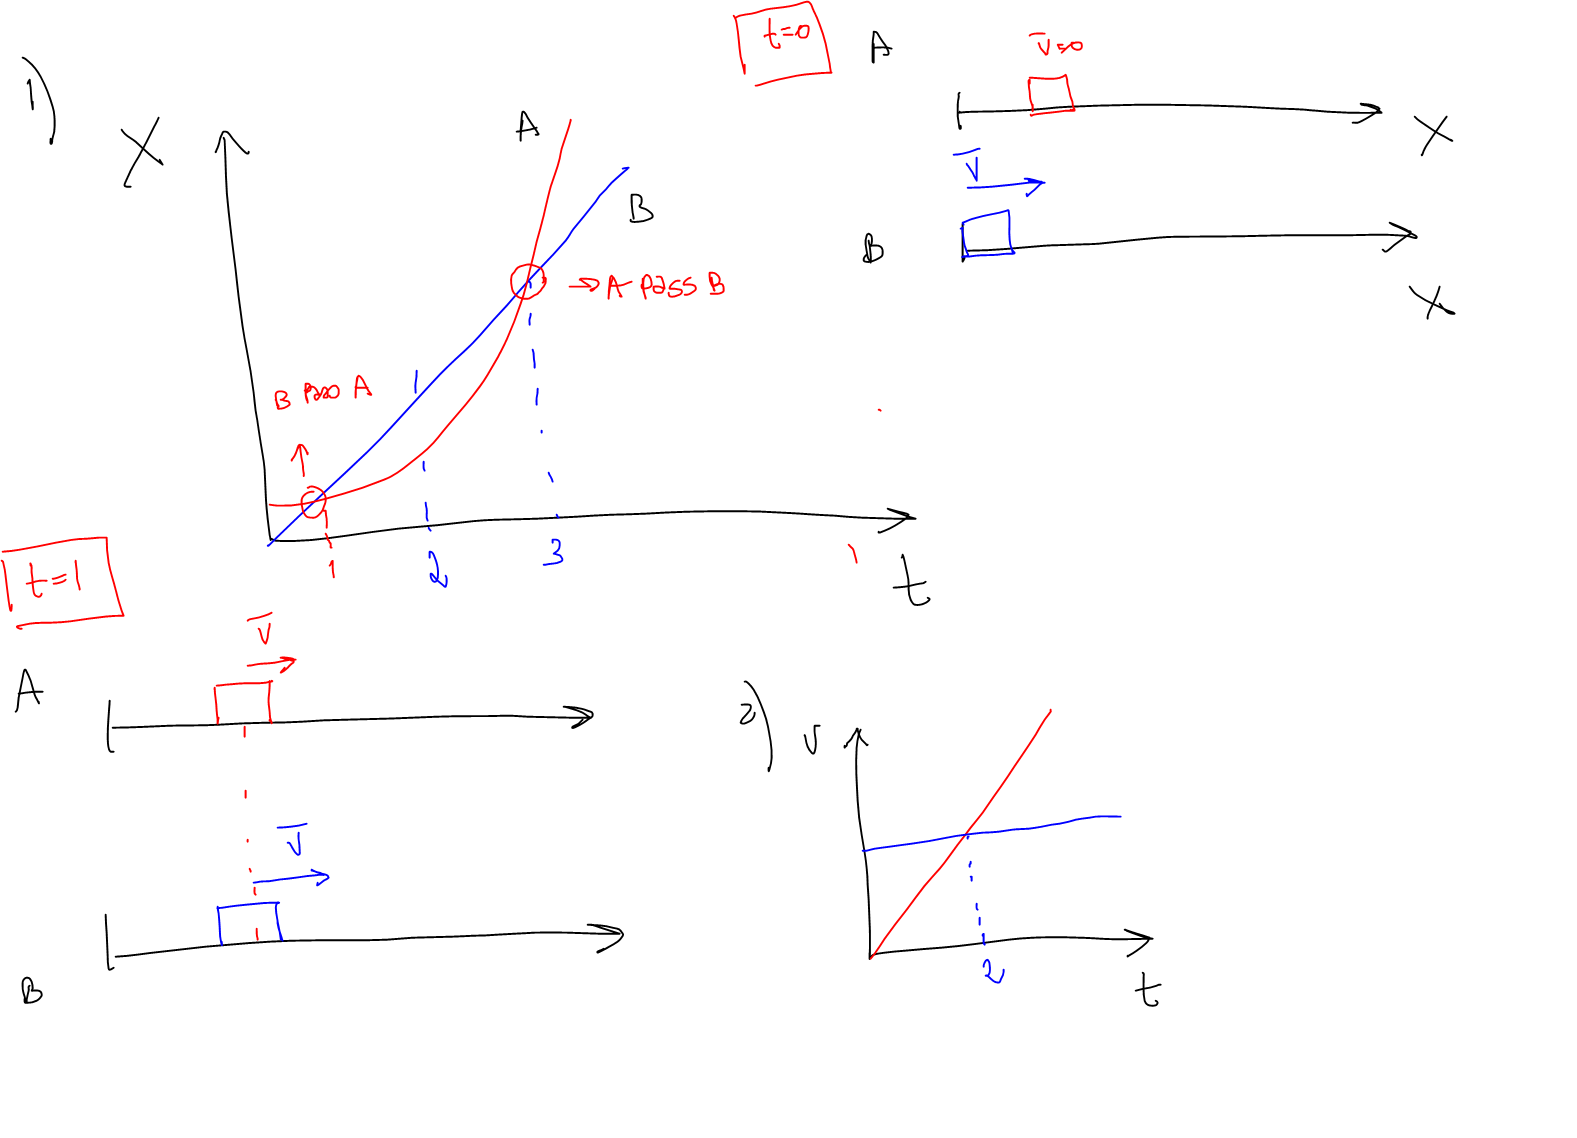 1)
X
A
B
→ A pass B
B pass A
1
2
3
t
t=0
A
V=0
X
V
B
X
t=1
A
V
V
B
2)
V
2
t